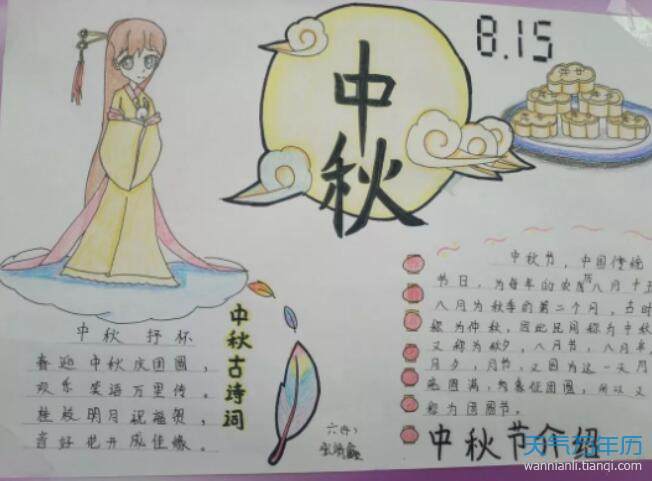 中秋
8.15
中秋 抒怀
喜迎中秋庆团圆，
欢乐笑语万里传。
桂殿明月祝福贺，
言好花开成佳缘。
中秋古诗词
中秋节，中国传统
节日，为每年的农历八月十五
八月为秋季的第二个月，古时
称为仲秋，因此民间称为中秋
又称为秋夕，八月节，八月半，
月夕，月节，又因为这一天月
亮圆满，象征团圆，所以又
称为团圆节。
中秋节介绍
天气万年历
wannianli.tianqi.com